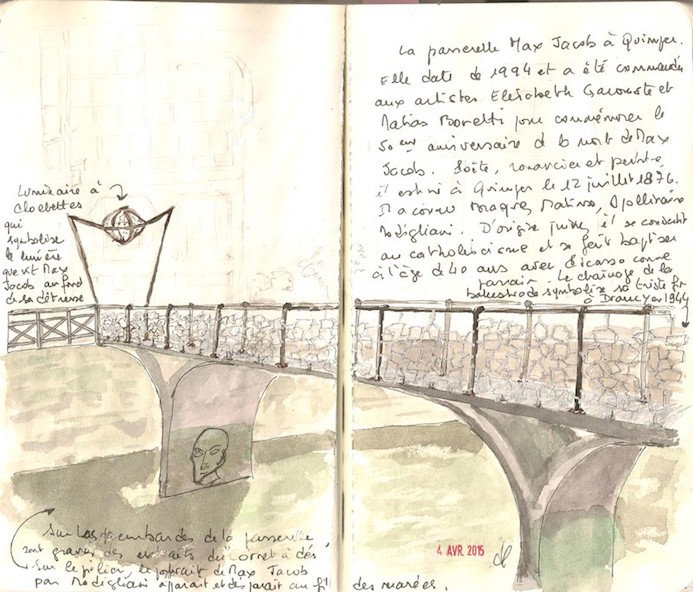 La passerelle Max Jacob à Quimper.
Elle date de 1994 et a été commandée
aux artistes Elisabeth Garouste et
Matias Bonetti pour commémorer le
50 eme anniversaire de la mort de Max
Jacob. Poëte, romancier et peintre
il est né à Quimper le 12 juillet 1876.
Il a connu Braque, Matisse, Apollinaire
Modigliani. D'origine juive, il se convertit
au catholicisme et se fait baptiser
à l'âge de 40 ans avec Picasso comme
parrain. Le chainage de la
balustrade symbolise sa triste fin
à Drancy en 1944
Luminaire à
Clochettes
qui
symbolise
la lumière
que vit Max
Jacob au fond
de sa détresse
Sur les rembardes de la passerelle
sont gravés des extraits du cornet à dés
Sur le pilier, le portrait de Max Jacob
par Modigliani apparait et disparait au fil
des marées.
4 AVR. 2015